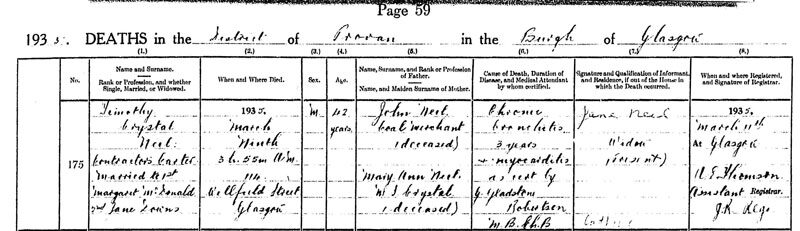 Page 59
1935. DEATHS in the District of Provan in the Burgh of Glasgow
(1.) (2.) (3.) (4.) (5.) (6.) (7.) (8.)
No.
Name and Surname.
Rank or Profession, and whether
Single, Married, or Widowed.
When and Where Died.
Sex.
Age.
Name, Surname, and Rank or Profession
of Father.
Name, and Maiden Surname of Mother.
Cause of Death, Duration of
Disease, and Medical Attendant
by whom certified.
Signature and Qualification of Informant,
and Residence, if out of the House in
which the Death occurred.
When and where Registered,
and Signature of Registrar.
175
Timothy
Crystal
Neil
Contractors Carter
Married to 1st
Margaret McDonald
2nd Jane Downs
1935.
March
Ninth
3 h. 55m
114
Wellfield Street
Glasgow
M.
42
years
John Neil
Coal Merchant
(deceased)
Mary Ann Neil
M. S. Crystal
(deceased)
Chronic
bronchitis
3 years
myocarditis
as cert by
G. Gladstone
Robertson
M.B. Ch.B
Jane Neil
Widow
(Present)
1935.
March 11th
At Glasgow
Thomson
Assistant Registrar.
J.R.